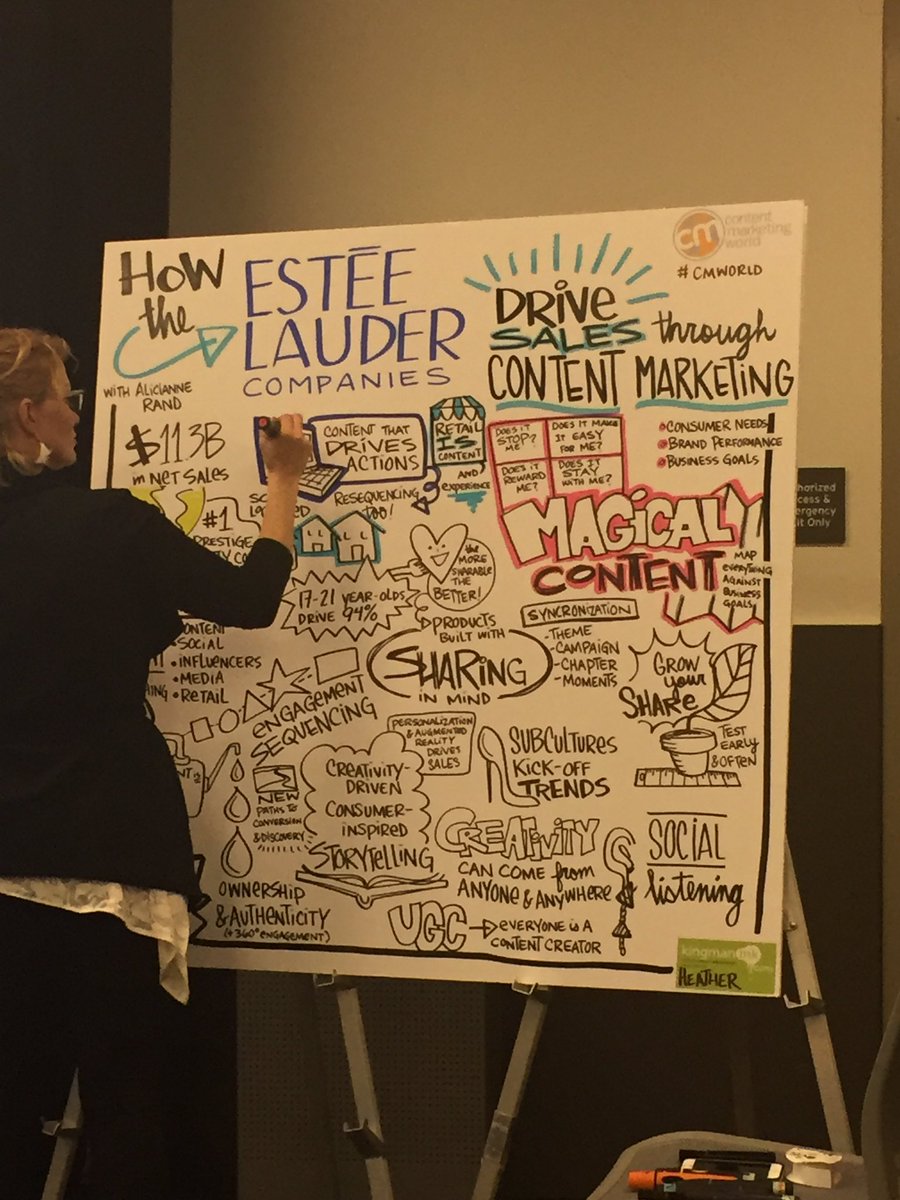 HOW
the
ESTĒE
LAUDER
COMPANIES
DRIVE
SALES through
CONTENT MARKETING
cm content
marketing
world
# CMWORLD
WITH ALICIANNE
RAND
$11.3B
in NET SALES
#1
PRESTIGE
CONTENT THAT
DRIVES
ACTIONS
RESEQUENCING
TOO!
RETAIL
IS
CONTENT
AND
experience
DOES IT
STOP?
ME?
DOES IT MAKE
IT EASY
FOR ME?
DOES IT
REWARD
ME?
DOES IT
STAY
WITH ME?
CONSUMER NEEDS
BRAND PERFORMANCE
BUSINESS GOALS
MAGICAL
CONTENT
MAP
EVERYTHING
AGAINST
BUSINESS
GOALS
17-21 YEAR-OLDS
DRIVE 94%
the
MORE
SHARABLE
THE
BETTER!
PRODUCTS
BUILT WITH
SHARING
IN MIND
SYNCRONIZATION
- THEME
- CAMPAIGN
- CHAPTER
- MOMENTS
GROW
your
SHARE
TEST
EARLY
& OFTEN
CONTENT
• SOCIAL
• INFLUENCERS
• MEDIA
• RETAIL
ENGAGEMENT
SEQUENCING
PERSONALIZATION
& AUGMENTED
REALITY
DRIVES
SALES
SUBCULTURES
KICK-OFF
TRENDS
NEW
PATHS TO
CONVERSION
& DISCOVERY
CREATIVITY-
DRIVEN
CONSUMER-
INSPIRED
STORYTELLING
CREATIVITY
CAN COME from
ANYONE & ANYWHERE
SOCIAL
listening
OWNERSHIP
& AUTHENTICITY
(+360° ENGAGEMENT)
UGC
EVERYONE is A
CONTENT CREATOR
kingman ink
.com
HEATHER
it Only